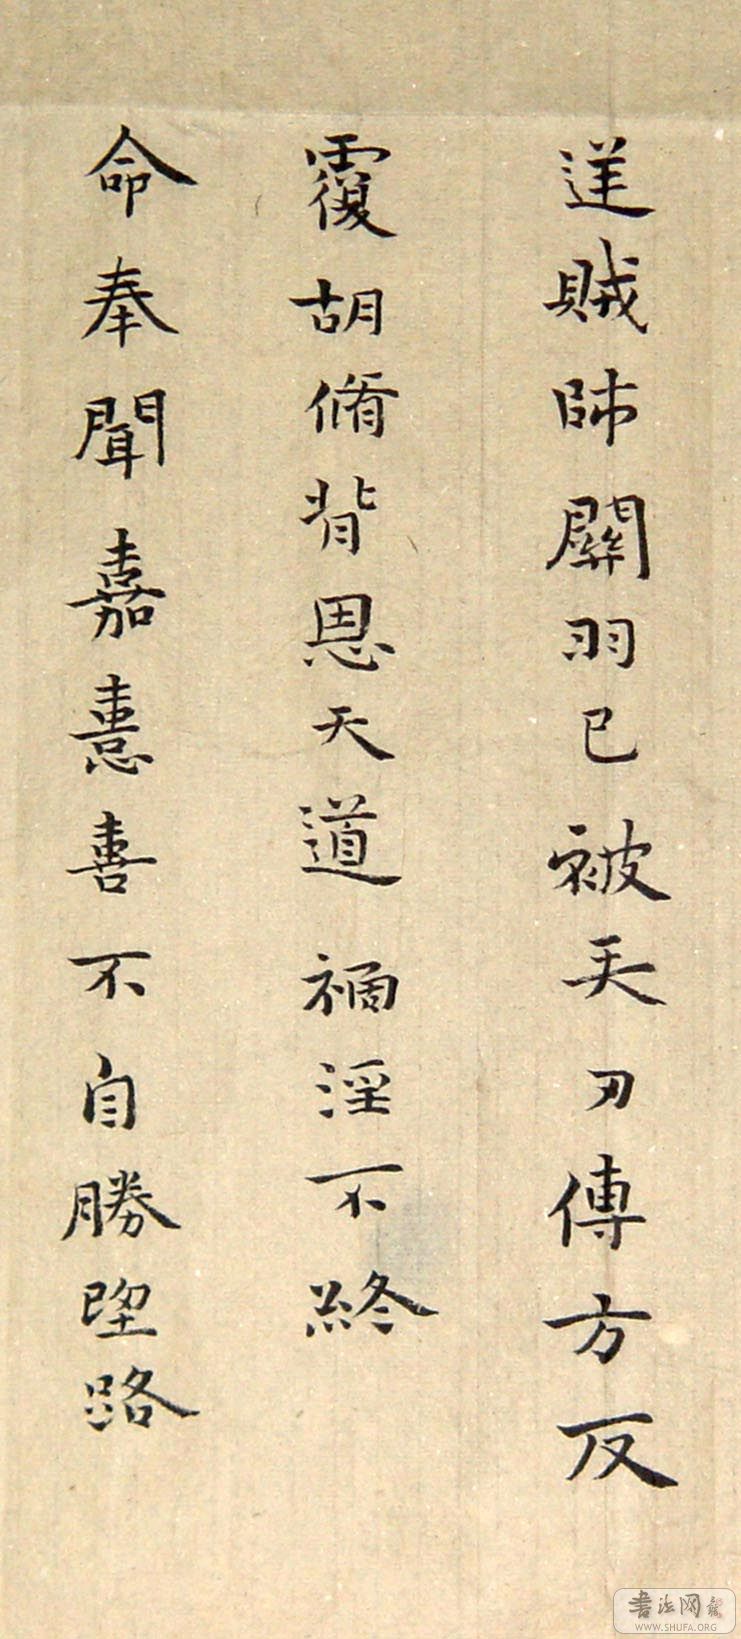 逆賊帥關羽已被矢刃傅方反
覆胡脩背恩天道禍淫不終
命奉聞嘉憙喜不自勝望路
書法网
WWW.SHUFA.ORG